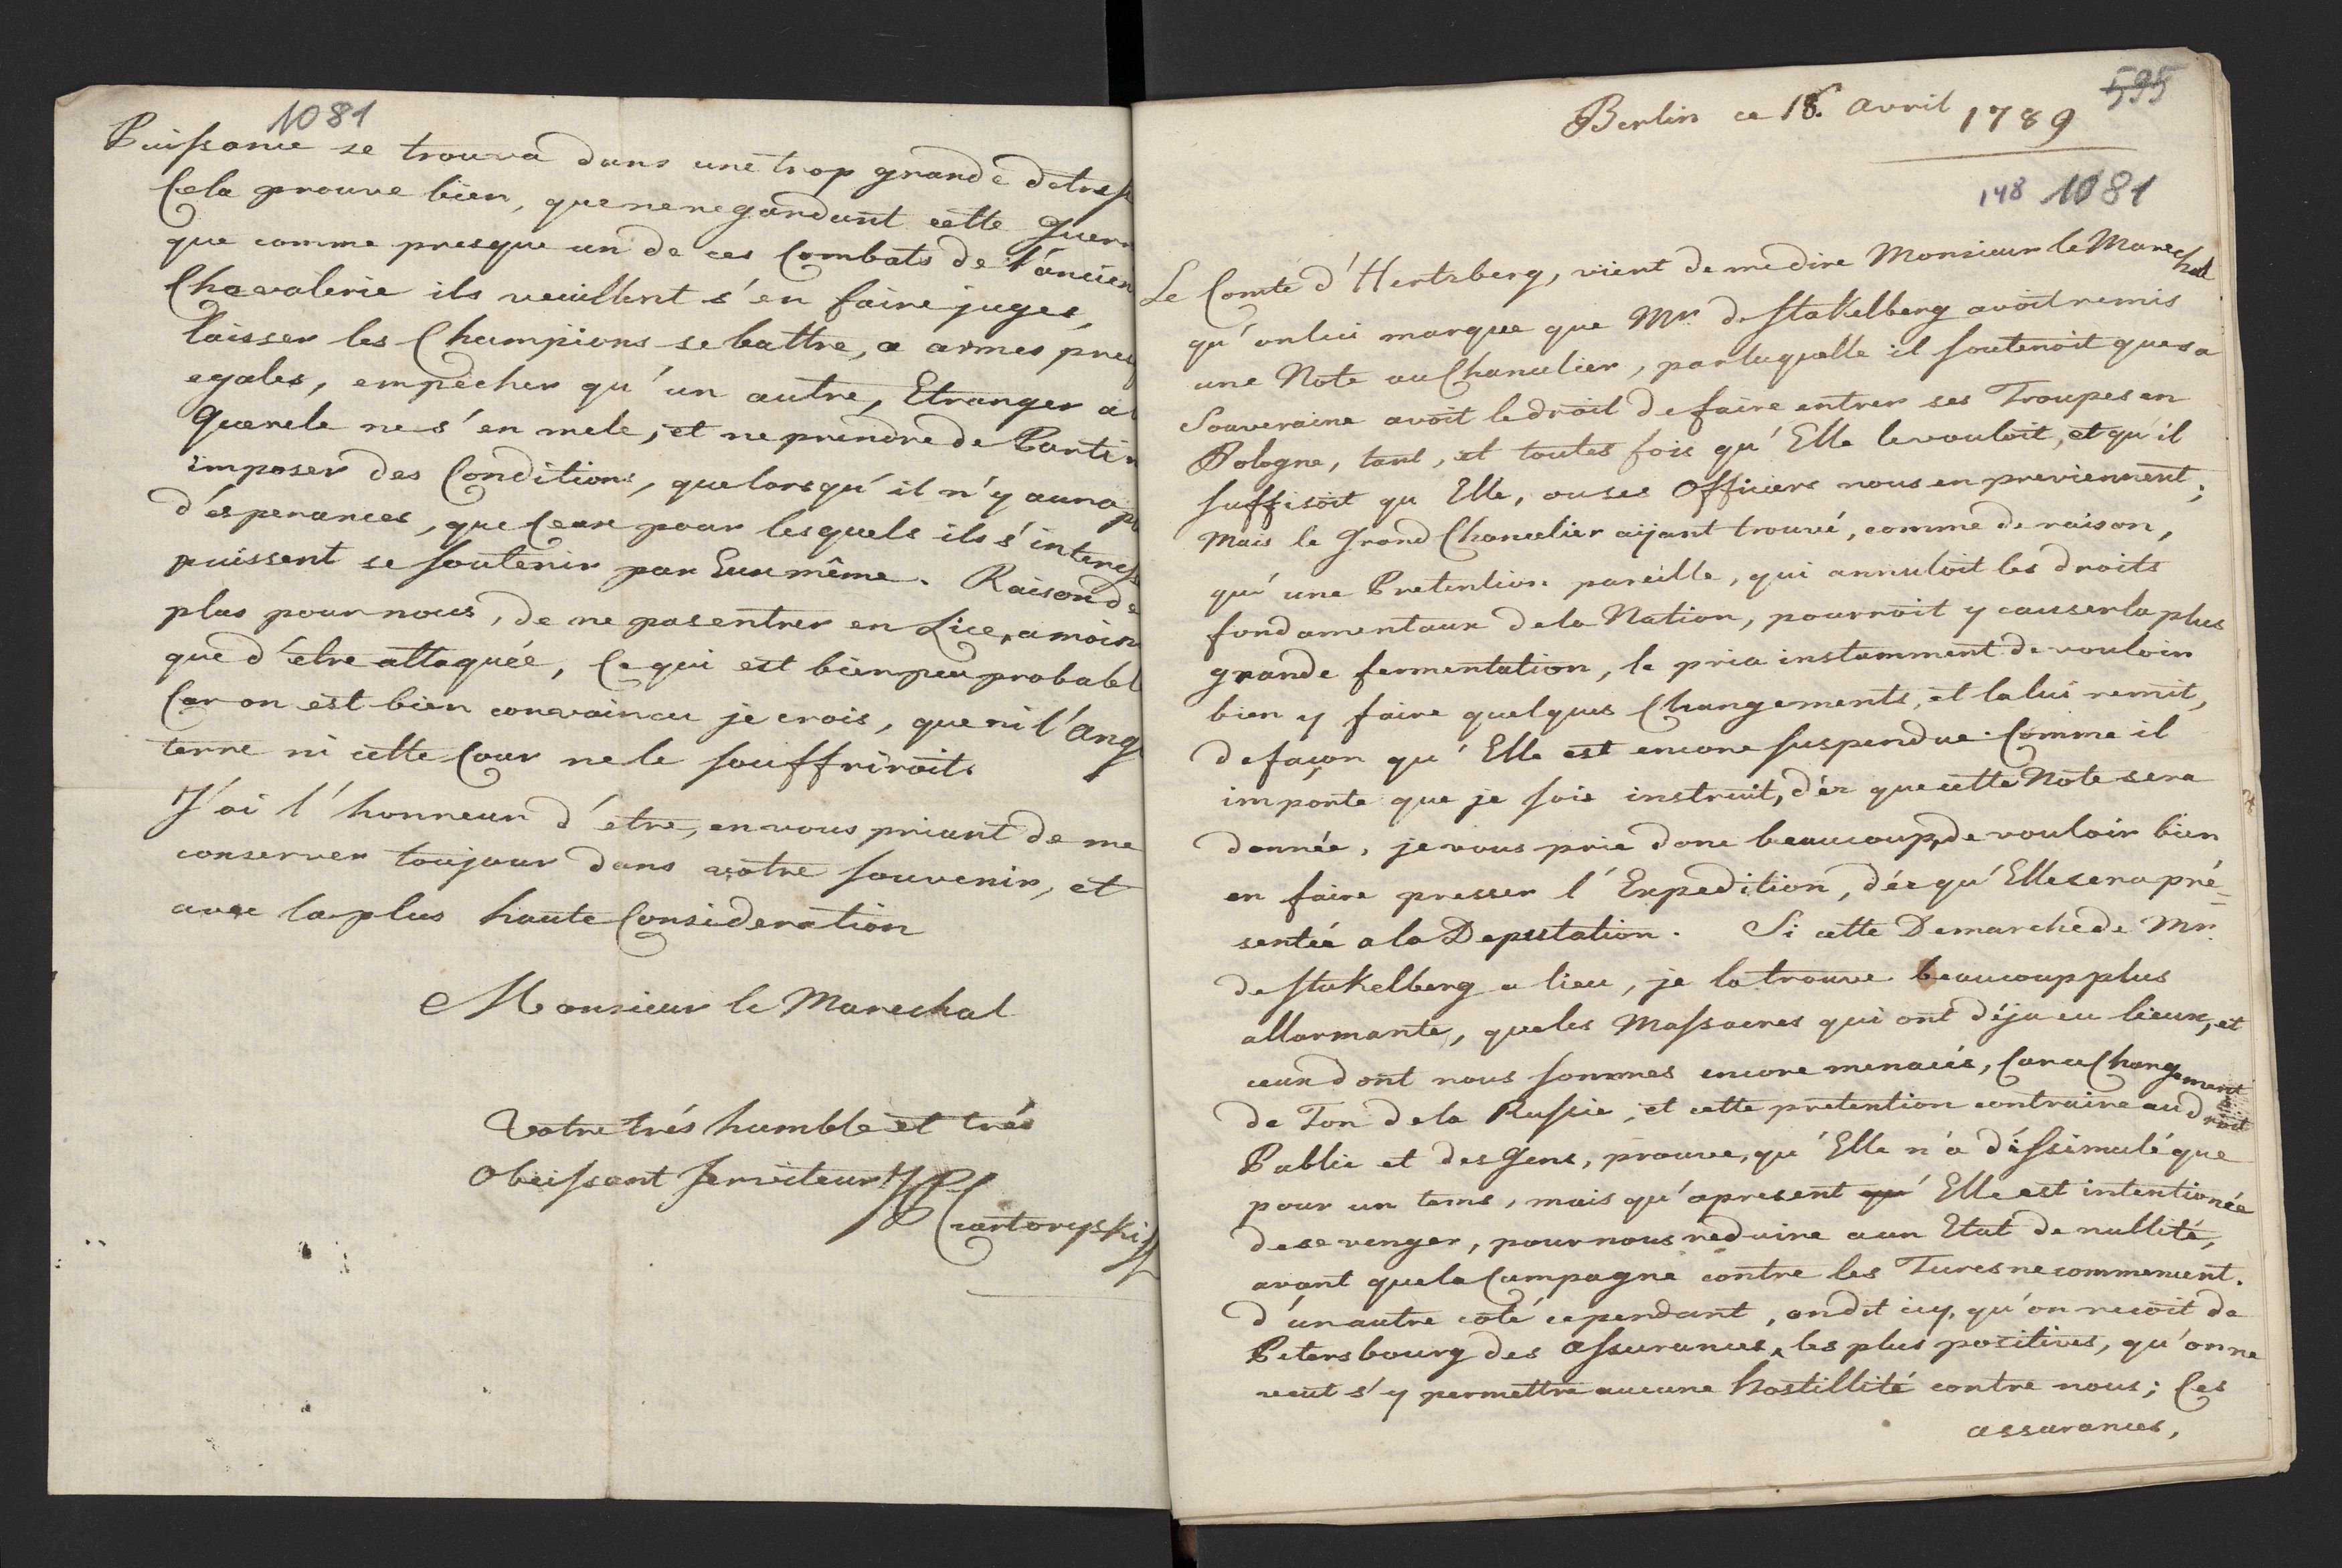 1081
Puissance se trouva dans une trop grande detress
Cela prouve bien, que ne regardant cette Guerr
que comme presque un de ces Combats de l'ancien
Chevalerie ils veuillent s'en faire juges,
laisser les Champions se battre, a armes
egales, empecher qu'un autre, Etranger a
Querele ne s'en mele, et ne prendre de Parti
imposer des Conditions, que lorsqu'il n'y aura
d'ésperances, que Ceux pour lesquels ils s'interess
puissent se soutenir par Eux même. Raison de
plus pour nous, de ne pas entrer en Lice, a moin
que d'étre attaquée, Ce qui est bien peu probabl
Car on est bien convaincu je crois, que ni l'Ang
terre ni cette Cour ne le souffriroit.
J'ai l'honneur d'etre, en vous priant de me
conserver toujour dans votre souvenir, et
avec la plus haute Consideration
Monsieur le Marechal
Votre trés humble et trés
Obeissant Serviteur
Czartoryski
595
Berlin ce 18. avril 1789
148 1081
Le Comte d'Hertzberg, vient de me dire Monsieur le Marechal
qu'on lui marque que Mr. de Stakelberg avoit remis
une Note au Chancelier, par laquelle il soutenoit que sa
Souveraine avoit le droit de faire entrer ses Troupes en
Pologne, tant, et toutes fois qu'Elle le vouloit, et qu'il
suffisoit qu Elle, ou ses Officiers nous en previennent;
Mais le Grand Chancelier aÿant trouvé, comme de raison,
qu'une Pretention pareille, qui annuloit les droits
fondamentaux de la Nation, pourroit y causer la plus
grande fermentation, le pria instamment de vouloir
bien y faire quelques Changements, et la lui remit,
de façon qu'Elle est encore suspendue. Comme il
importe que je sois instruit, d'és que cette Note sera
donnée, je vous prie donc beaucoup, de vouloir bien
en faire presser l'Expedition, d'és qu'Elle sera pré-
sentée a la Deputation. Si cette Demarche de Mr.
de Stakelberg a lieu, je la trouve beaucoup plus
allarmante, que les Massacres qui ont déja eu lieux, et
ceux dont nous sommes encore menacés, Car ce Changement
de Ton de la Russie, et cette pretention contraire au droit
Public et des Gens, prouve, qu'Elle n'a dissimulé que
pour un tems, mais qu'apresent qu' Elle est intentionée
de se venger, pour nous reduire a un Etat de nullité,
avant que la Campagne contre les Turcs ne commencent.
d'un autre coté cependant, on dit icy, qu'on recoit de
Petersbourg des assurances, les plus positives, qu'on ne
veut s'y permettre aucune hostillité contre nous; Ces
assurances,